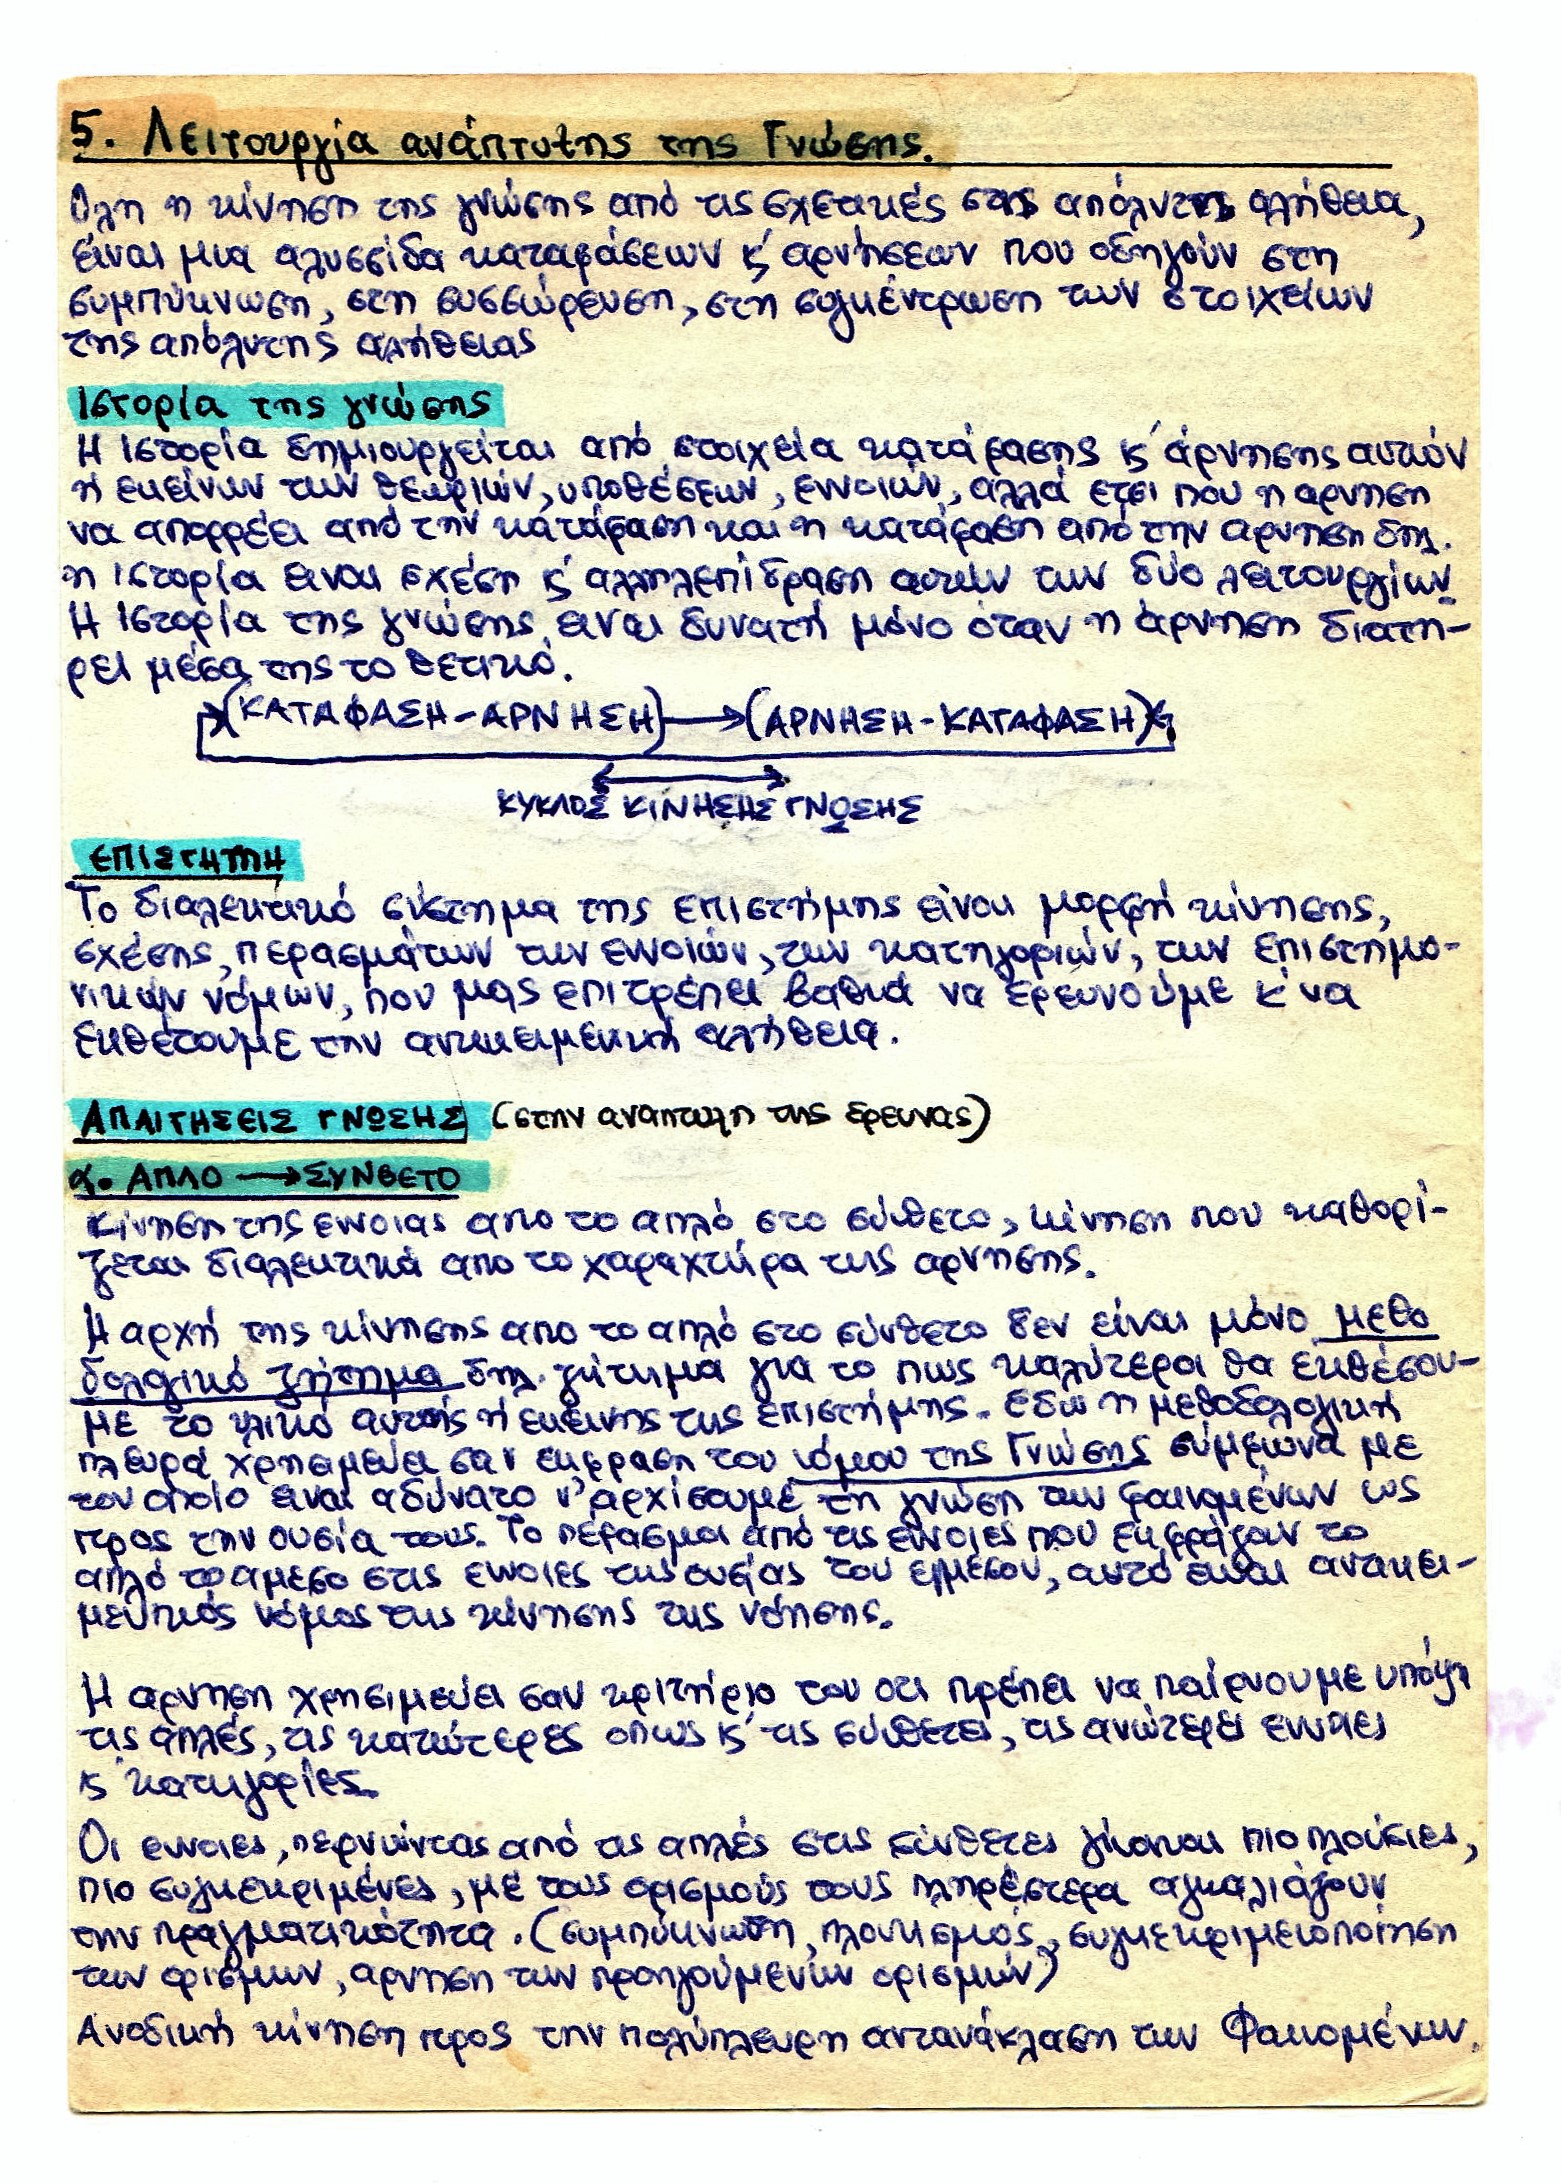 5. Λειτουργία ανάπτυξης της Γνώσης.
Όλη η κίνηση της γνώσης από τις σχετικές στις απόλυτης αλήθεια,
είναι μια αλυσσίδα καταφάσεων κ' αρνήσεων που οδηγούν στη
συμπύκνωση, στη συσσώρευση, στη συγκέντρωση των στοιχείων
της απόλυτης αλήθειας
Ιστορία της γνώσης
Η Ιστορία δημιουργείται από στοιχεία κατάφασης κ' άρνησης αυτών
ή εκείνων των θεωριών, υποθέσεων, εννοιών, αλλά ετσι που η αρνηση
να απορρέει από την κατάφαση και η κατάφαση από την αρνηση δηλ.
η Ιστορία ειναι σχέση κ' αλληλεπίδραση αυτών των δύο λειτουργίων.
Η Ιστορία της γνώσης ειναι δυνατή μόνο όταν η άρνηση διατη-
ρεί μέσα της το θετικό.
(ΚΑΤΑΦΑΣΗ-ΑΡΝΗΣΗ) → (ΑΡΝΗΣΗ-ΚΑΤΑΦΑΣΗ)
ΚΥΚΛΟΣ ΚΙΝΗΣΗΣ ΓΝΩΣΗΣ
ΕΠΙΣΤΗΜΗ
Το διαλεκτικό σύστημα της επιστήμης είναι μορφή κίνησης,
σχέσης, περασμάτων των εννοιών, των κατηγοριών, των επιστημο-
νικών νόμων, που μας επιτρέπει βαθιά να ερευνούμε κ' να
εκθέτουμε την αντικειμενική αλήθεια.
ΑΠΑΙΤΗΣΕΙΣ ΓΝΩΣΗΣ (στην αναπτυξη της έρευνας)
α. ΑΠΛΟ → ΣΥΝΘΕΤΟ
Κίνηση της εννοιας απο το απλό στο σύνθετο, κίνηση που καθορί-
ζεται διαλεκτικά απο το χαραχτήρα της αρνησης.
Η αρχή της κίνησης απο το απλό στο σύνθετο δεν είναι μόνο μεθο
δολογικό ζήτημα δηλ. ζήτημα για το πως καλύτεροι θα εκθέσου-
με το υλικό αυτής ή εκεινης της επιστήμης. Εδώ η μεθοδολογική
πλευρά χρησιμεύει σαν εκφραση του νόμου της Γνώσης σύμφωνα με
τον οποίο ειναι αδύνατο ν' αρχίσουμε τη γνώση των φαινομένων ως
προς την ουσία τους. Το πέρασμα από τις εννοιες που εκφράζουν το
απλό το αμεσο στις εννοιες της ουσίας του εμμέσου, αυτό ειναι αντικει-
μενικός νόμος της κίνησης της νόησης.
Η αρνηση χρησιμεύει σαν κριτήριο του οτι πρέπει να παίρνουμε υπόψη
τις απλές, τις κατώτερες οπως κ' τις σύνθετες, τις ανώτερες εννοιες
κ' κατηγορίες.
Οι εννοιες, περνώντας από τις απλές στις σύνθετες γίνονται πιο πλούσιες,
πιο συγκεκριμένες, με τους ορισμούς τους πληρέστερα αγκαλιάζουν
την πραγματικότητα. (συμπύκνωση, πλουτισμός, συγκεκριμενοποίηση
των ορισμων, αρνηση των προηγούμενων ορισμών)
Ανοδική κίνηση προς την πολύπλευρη αντανάκλαση των Φαινομένων.